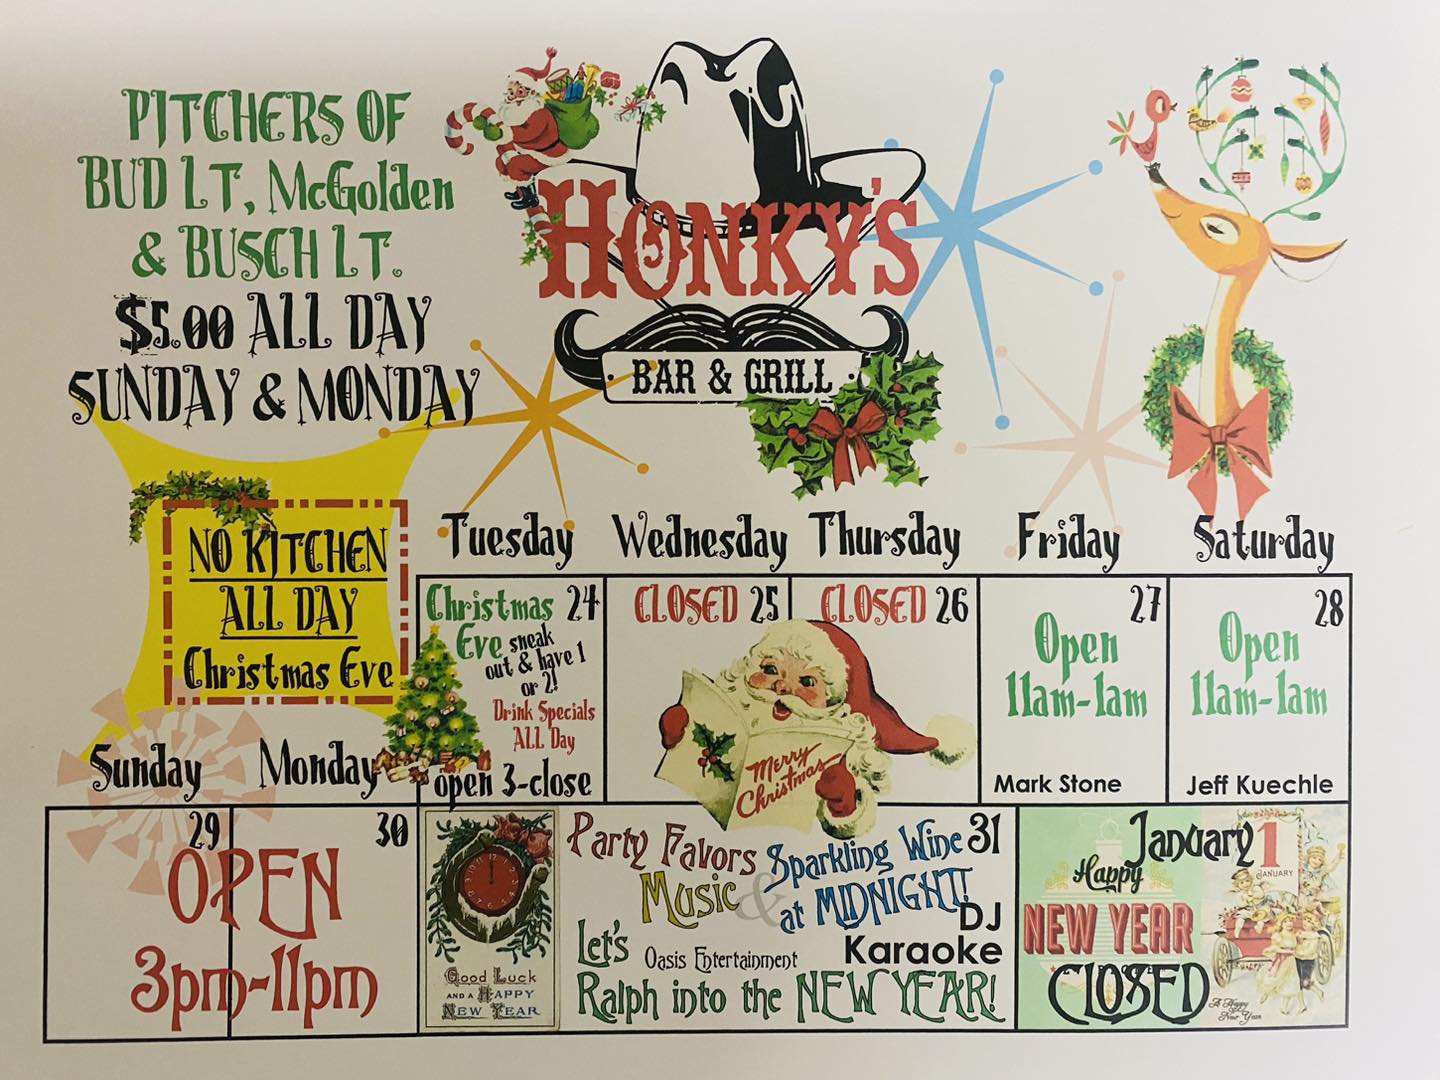 PITCHERS OF
BUD LT, McGolden
& BUSCH LT.
$5.00 ALL DAY
SUNDAY & MONDAY
HONKY'S
BAR & GRILL
NO KITCHEN
ALL DAY
Christmas Eve
Tuesday Wednesday Thursday Friday Saturday
Christmas 24
Eve sneak
out & have 1
or 2!
Drink Specials
ALL Day
open 3-close
CLOSED 25
CLOSED 26
Merry
Christmas
27
Open
11am-1am
Mark Stone
28
Open
11am-1am
Jeff Kuechle
Sunday Monday
29 30
OPEN
3pm-11pm
Good Luck
AND A HAPPY
NEW YEAR
Party Favors
Music &
Sparkling Wine 31
at MIDNIGHT!
DJ
Karaoke
Let's Oasis Entertainment
Ralph into the NEW YEAR!
January 1
JANUARY
Happy
NEW YEAR
CLOSED
A Happy
New Year